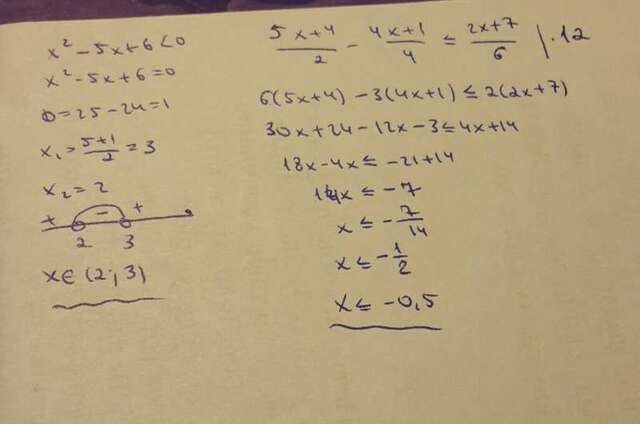 x² - 5x + 6 < 0
x² - 5x + 6 = 0
D = 25 - 24 = 1
x₁ = (5+1)/2 = 3
x₂ = 2
+ - +
2 3
x ∈ (2; 3)
(5x+4)/2 - (4x+1)/4 ≤ (2x+7)/6 | · 12
6(5x+4) - 3(4x+1) ≤ 2(2x+7)
30x + 24 - 12x - 3 ≤ 4x + 14
18x - 4x ≤ -21 + 14
14x ≤ -7
x ≤ -7/14
x ≤ -1/2
x ≤ -0,5